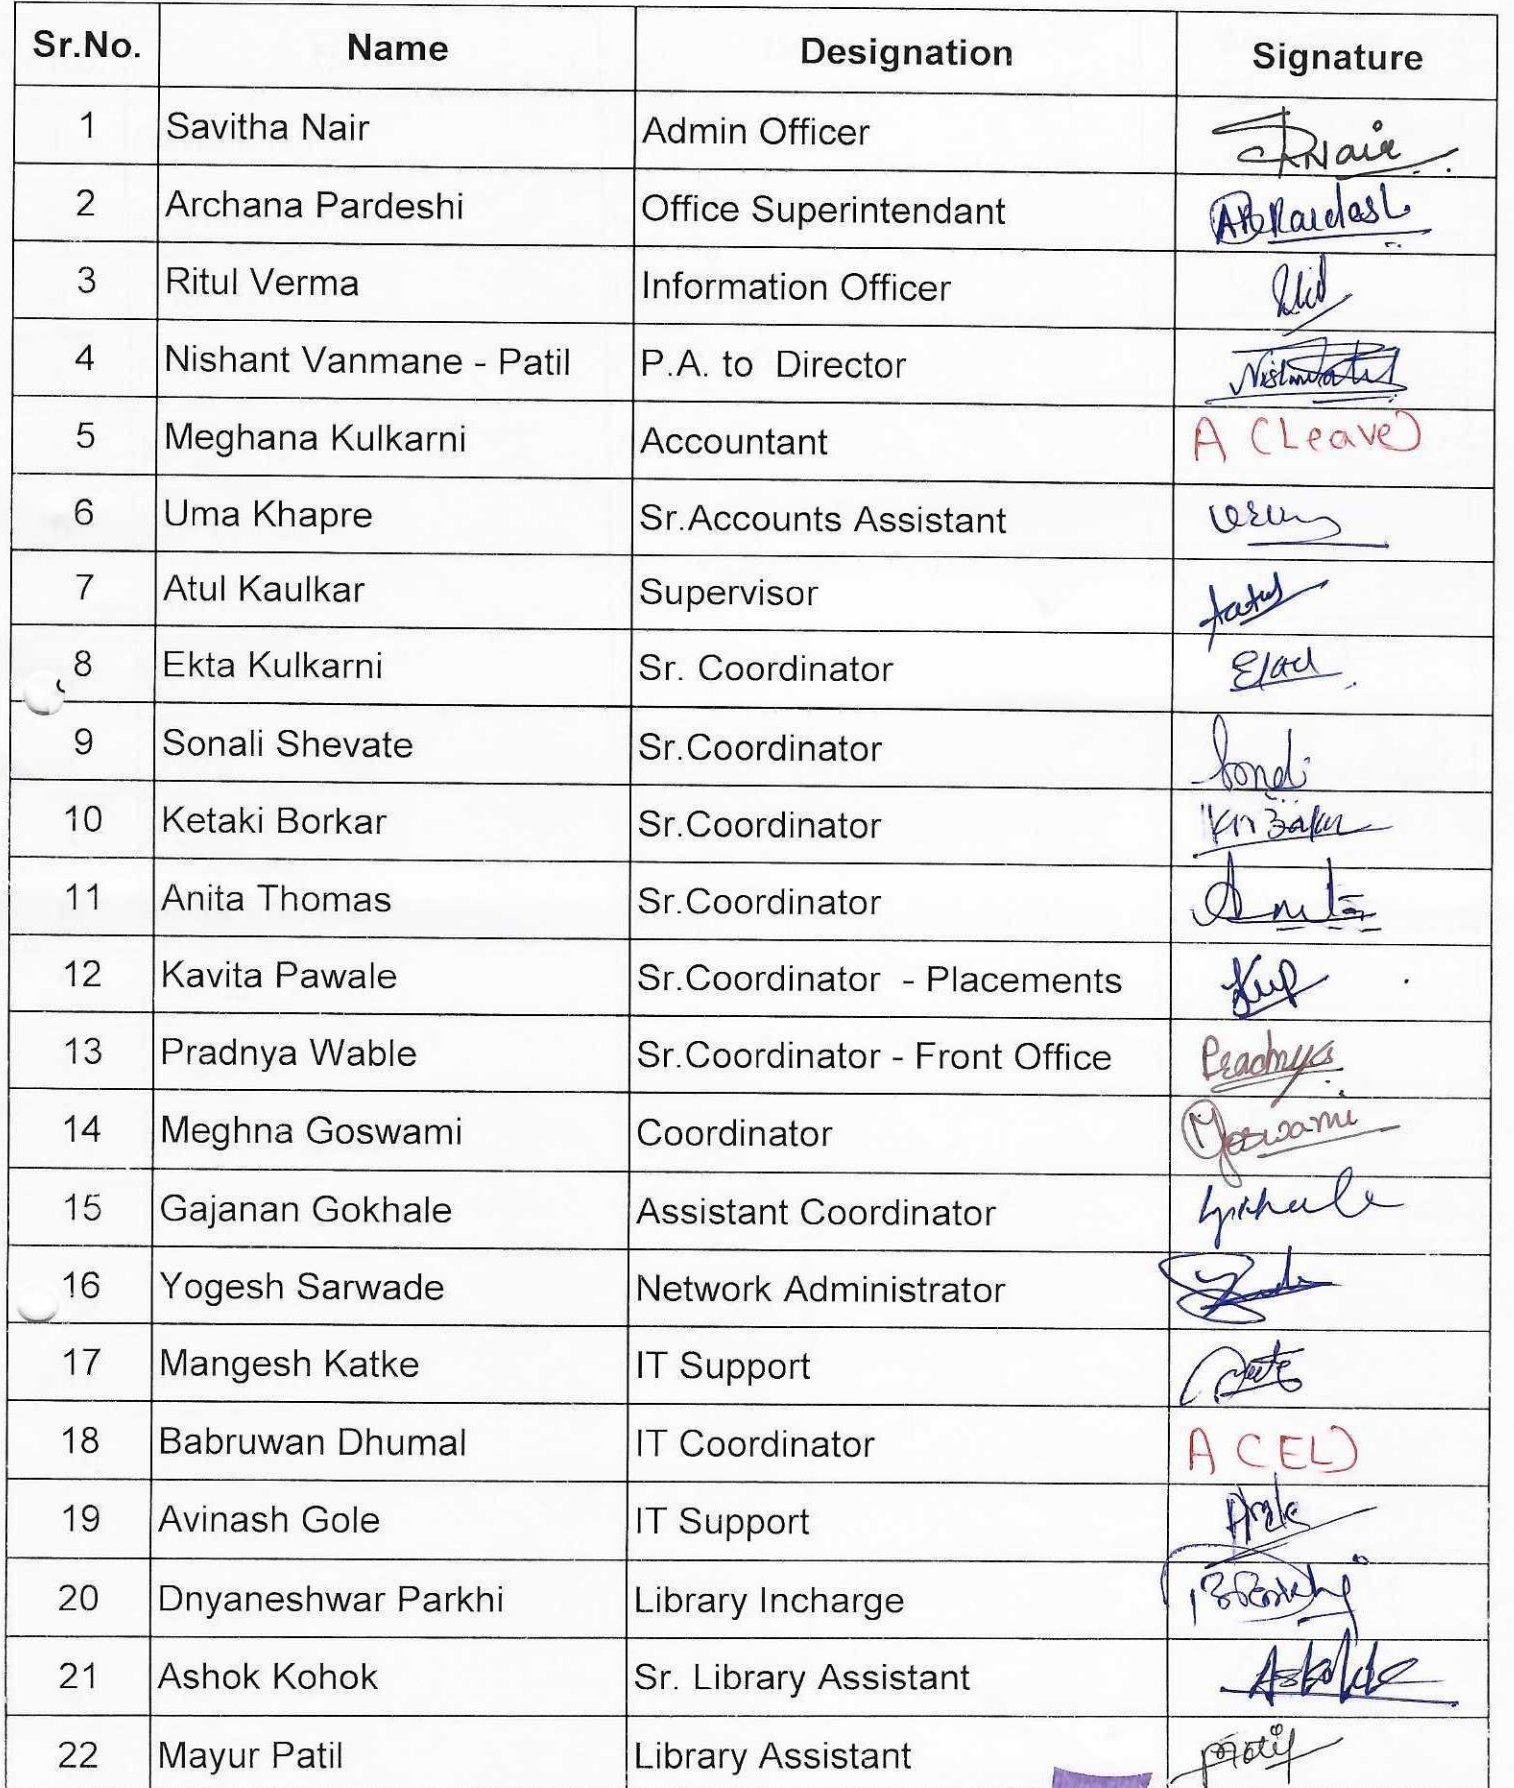 Sr.No. Name Designation Signature
1 Savitha Nair Admin Officer
2 Archana Pardeshi Office Superintendant
3 Ritul Verma Information Officer
4 Nishant Vanmane - Patil P.A. to Director
5 Meghana Kulkarni Accountant A (Leave)
6 Uma Khapre Sr.Accounts Assistant
7 Atul Kaulkar Supervisor
8 Ekta Kulkarni Sr. Coordinator
9 Sonali Shevate Sr.Coordinator
10 Ketaki Borkar Sr.Coordinator
11 Anita Thomas Sr.Coordinator
12 Kavita Pawale Sr.Coordinator - Placements
13 Pradnya Wable Sr.Coordinator - Front Office Pradnya
14 Meghna Goswami Coordinator Goswami
15 Gajanan Gokhale Assistant Coordinator
16 Yogesh Sarwade Network Administrator
17 Mangesh Katke IT Support
18 Babruwan Dhumal IT Coordinator A (EL)
19 Avinash Gole IT Support
20 Dnyaneshwar Parkhi Library Incharge
21 Ashok Kohok Sr. Library Assistant
22 Mayur Patil Library Assistant